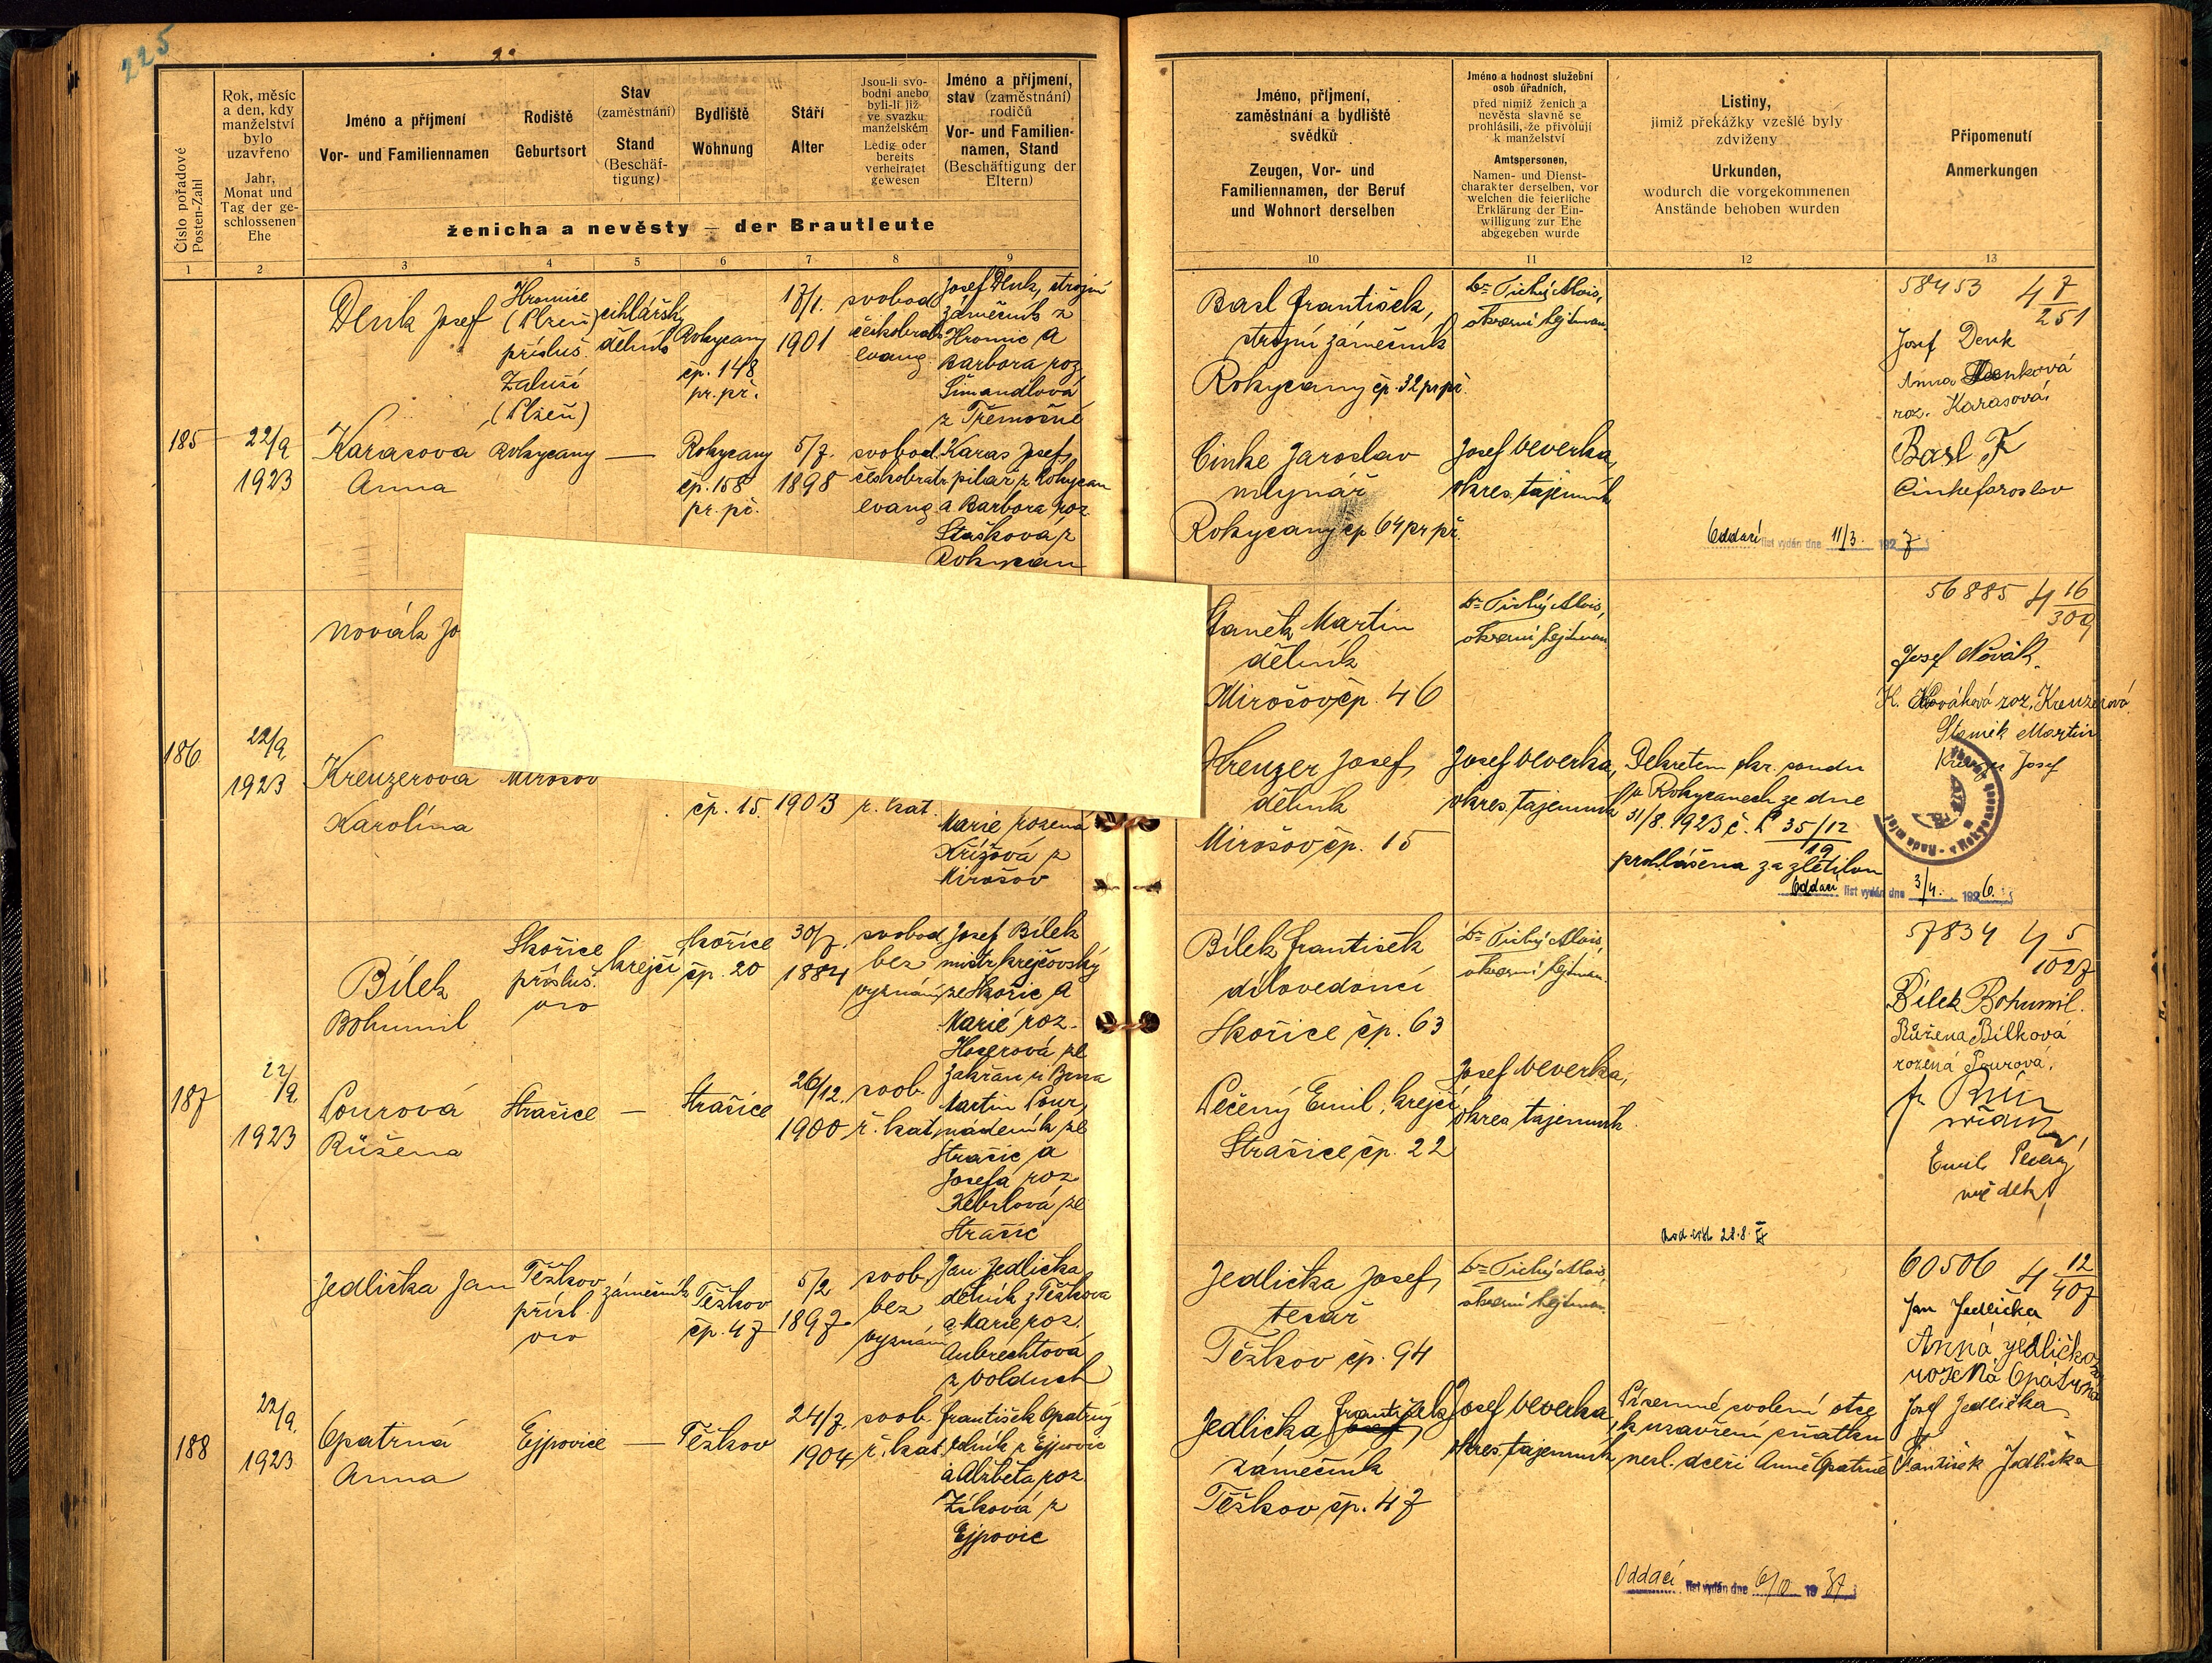 225
Číslo pořadové
Posten-Zahl
Rok, měsíc
a den, kdy
manželství
bylo
uzavřeno
Jahr,
Monat und
Tag der ge-
schlossenen
Ehe
Jméno a příjmení
Vor- und Familiennamen
Rodiště
Geburtsort
Stav
(zaměstnání)
Stand
(Beschäf-
tigung)
Bydliště
Wohnung
Stáří
Alter
Jsou-li svo-
bodni anebo
byli-li již
ve svazku
manželském
Ledig oder
bereits
verheiratet
gewesen
Jméno a příjmení,
stav (zaměstnání)
rodičů
Vor- und Familien-
namen, Stand
(Beschäftigung der
Eltern)
ženicha a nevěsty — der Brautleute
Jméno, příjmení,
zaměstnání a bydliště
svědků
Zeugen, Vor- und
Familiennamen, der Beruf
und Wohnort derselben
Jméno a hodnost služební
osob úřadních,
před nimiž ženich a
nevěsta slavně se
prohlásili, že přivolují
k manželství
Amtspersonen,
Namen- und Dienst-
charakter derselben, vor
welchen die feierliche
Erklärung der Ein-
willigung zur Ehe
abgegeben wurde
Listiny,
jimiž překážky vzešlé byly
zdviženy
Urkunden,
wodurch die vorgekommenen
Anstände behoben wurden
Připomenutí
Anmerkungen
1 2 3 4 5 6 7 8 9 10 11 12 13
Denk Josef
Hromice
(Plzeň)
přísluš.
Zaluší
(Plzeň)
cihlářský
dělník
Rokycany
čp. 148
pr. př.
17/1.
1901
svobod
českobratr
evang.
Josef Denk, strojní
zámečník z
Hromic a
Barbora roz.
Šimandlová
z Třemošné
Basl František,
strojní zámečník
Rokycany čp. 32 pr př.
Dr Tichý Alois,
okresní hejtman
58453 4 7/251
Josef Denk
Anna Denková
roz. Karasová
Basl F
Cinke Jaroslav
185
22/9
1923
Karasova
Anna
Rokycany
—
Rokycany
čp. 158
pr. př.
5/7.
1898
svobod.
českobratr
evang
Karas Josef,
pilař z Rokycan
a Barbora roz.
Stašková z
Rokycan
Cinke Jaroslav
mlynář
Rokycany čp 64 pr př.
Josef Veverka,
okres. tajemník
Oddací list vydán dne 11/3. 1927
Novák Jo
Staněk Martin
dělník
Mirošov, čp. 46
Dr Tichý Alois,
okresní hejtman
56885 4 16/309
Josef Novák.
K. Nováková roz. Kreuzerová
Staněk Martin
Kreuzer Josef
186
22/9
1923
Kreuzerová
Karolína
Mirošov
čp. 15
1903
ř. kat.
Marie rozená
Křížová z
Mirošov
Kreuzer Josef,
dělník
Mirošov, čp. 15
Josef Veverka,
okres. tajemník
Dekretem okr. soudu
v Rokycanech ze dne
31/8. 1923 č. P 35/12
19
prohlášena za zletilou
Oddací list vydán dne 3/4. 1926.
Bílek
Bohumil
Skořice
přísluš.
krejčí
Skořice
čp. 20
30/7.
1884
svobod
bez
vyznání
Josef Bílek
mistr krejčovský
ze Skořic a
Marie roz.
Hoserová ze
Zakřan u Brna
Bílek František
dílovedoucí
Skořice čp. 63
Dr Tichý Alois,
okresní hejtman.
57834 4 5/1027
Bílek Bohumil.
Růžena Bílková
rozená Pourová.
Emil Pečený
svědek
187
22/9.
1923
Pourová
Růžena
Strašice
—
Strašice
26/12.
1900
svob.
ř. kat.
Martin Pour,
nádeník ze
Strašic a
Josefa roz.
Kebrlová ze
Strašic
Pečený Emil, krejčí
Strašice, čp. 22
Josef Veverka,
okres tajemník.
Jedlička Jan
Těškov
přísl.
zámečník
Těškov
čp. 47
5/2
1897.
svob.
bez
vyznání
Jan Jedlička
dělník z Těškova
a Marie roz.
Aubrechtová
z Volduch
Jedlička Josef,
tesař
Těškov čp. 94
Dr Tichý Alois,
okresní hejtman.
60506 4 12/407
Jan Jedlička
Anna Jedličková
rozená Opatrná
Josef Jedlička
František Jedlička
188
22/9.
1923
Opatrná
Anna
Ejpovice
—
Těškov
24/7.
1904
svob.
ř. kat.
František Opatrný
dělník z Ejpovic
a Alžběta roz
Zíková z
Ejpovic
Jedlička František
zámečník
Těškov čp. 47
Josef Veverka,
okres. tajemník
Písemné svolení otce
k uzavření sňatku
nezl. dceři Anně Opatrné
Oddací list vydán dne 6/10 1937